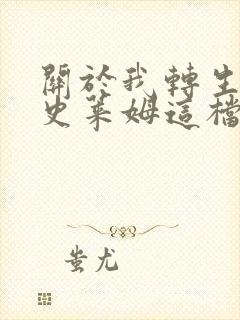 關於我轉生
史萊姆這檔
蚩尤